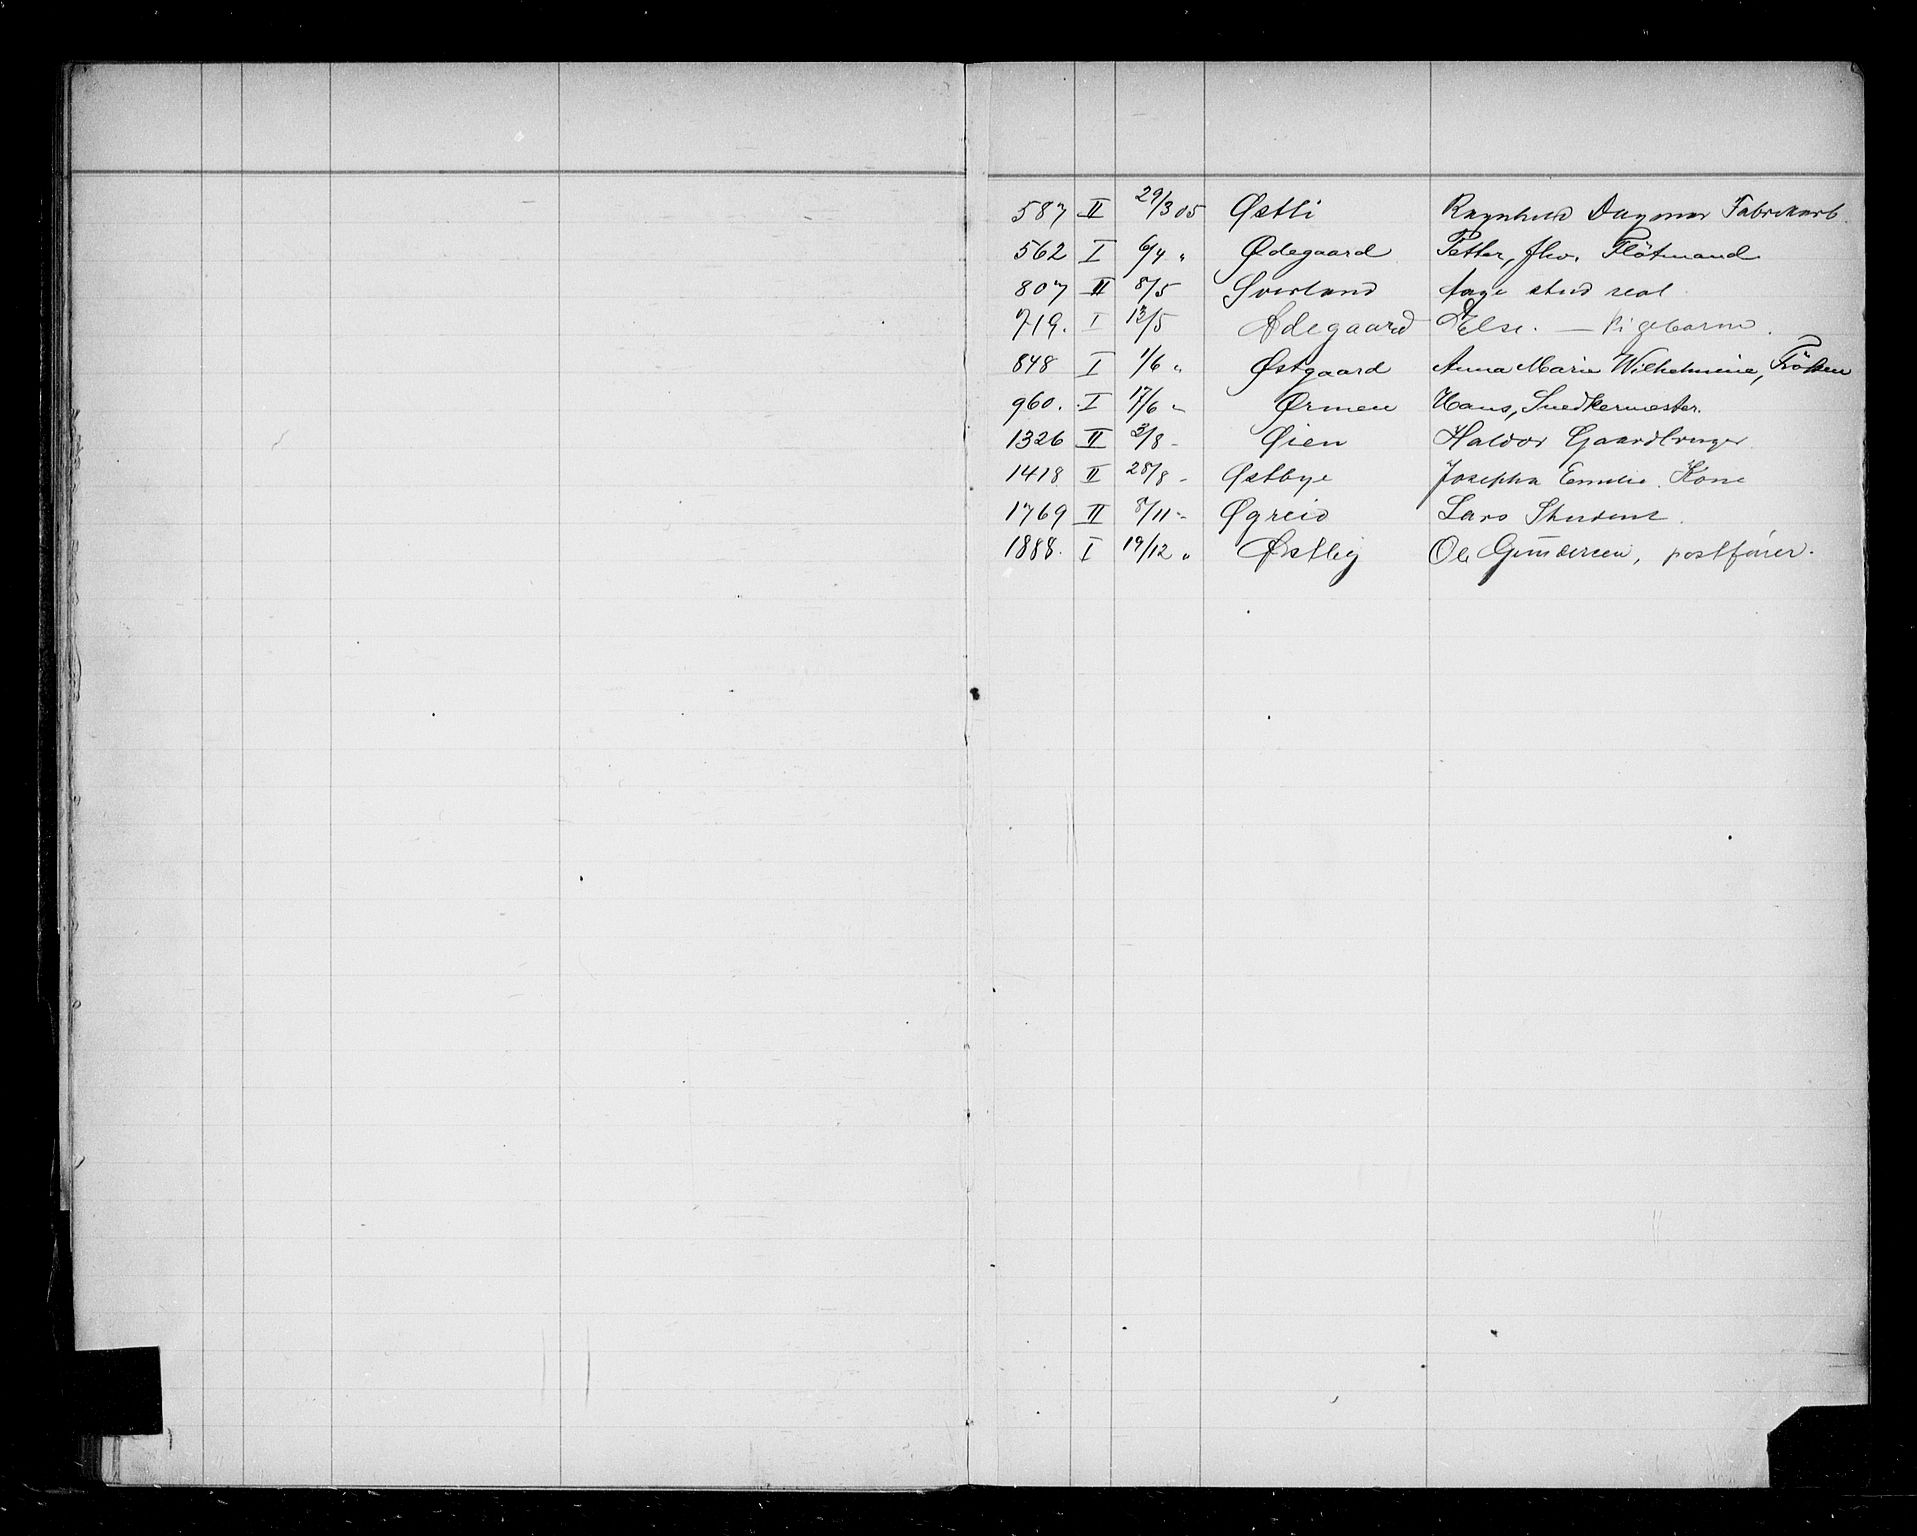 587 II 29/3 05 Østli Ragnhild Dagmar Fabrikarb.
562 I 6/4 " Ødegaard Petter, Flötmand
807 II 8/5 Överland Aage stud real
719. I 13/5 Ødegaard Else. — Pigebarn.
848 I 1/6 " Østgaard Anna Marie Wilhelmine, Fröken
960. I 17/6 " Ørmen Hans, Snedkermester.
1326 II 3/8 - Øien Haldor Gaardbruger
1418 II 28/8 - Østbye Josepha Emilie. Kone
1769 II 8/11 - Øgreid Lars Student.
1888. I 19/12 " Østby Ole Gundersen, postfører.